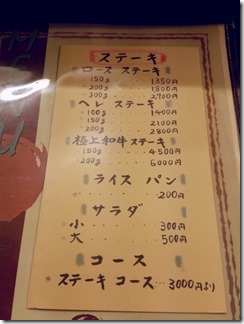 ステーキ
ロース ステーキ
150g ・・・・・ 1350円
200g ・・・・・ 1800円
300g ・・・・・ 2700円
ヘレ ステーキ
100g ・・・・・ 1400円
150g ・・・・・ 2100円
200g ・・・・・ 2800円
極上和牛ステーキ
150g ・・・・・ 4500円
200g ・・・・・ 6000円
ライス パン
・・・・・ 200円
サラダ
小 ・・・・・ 300円
大 ・・・・・ 500円
コース
ステーキ コース・・・3000円より